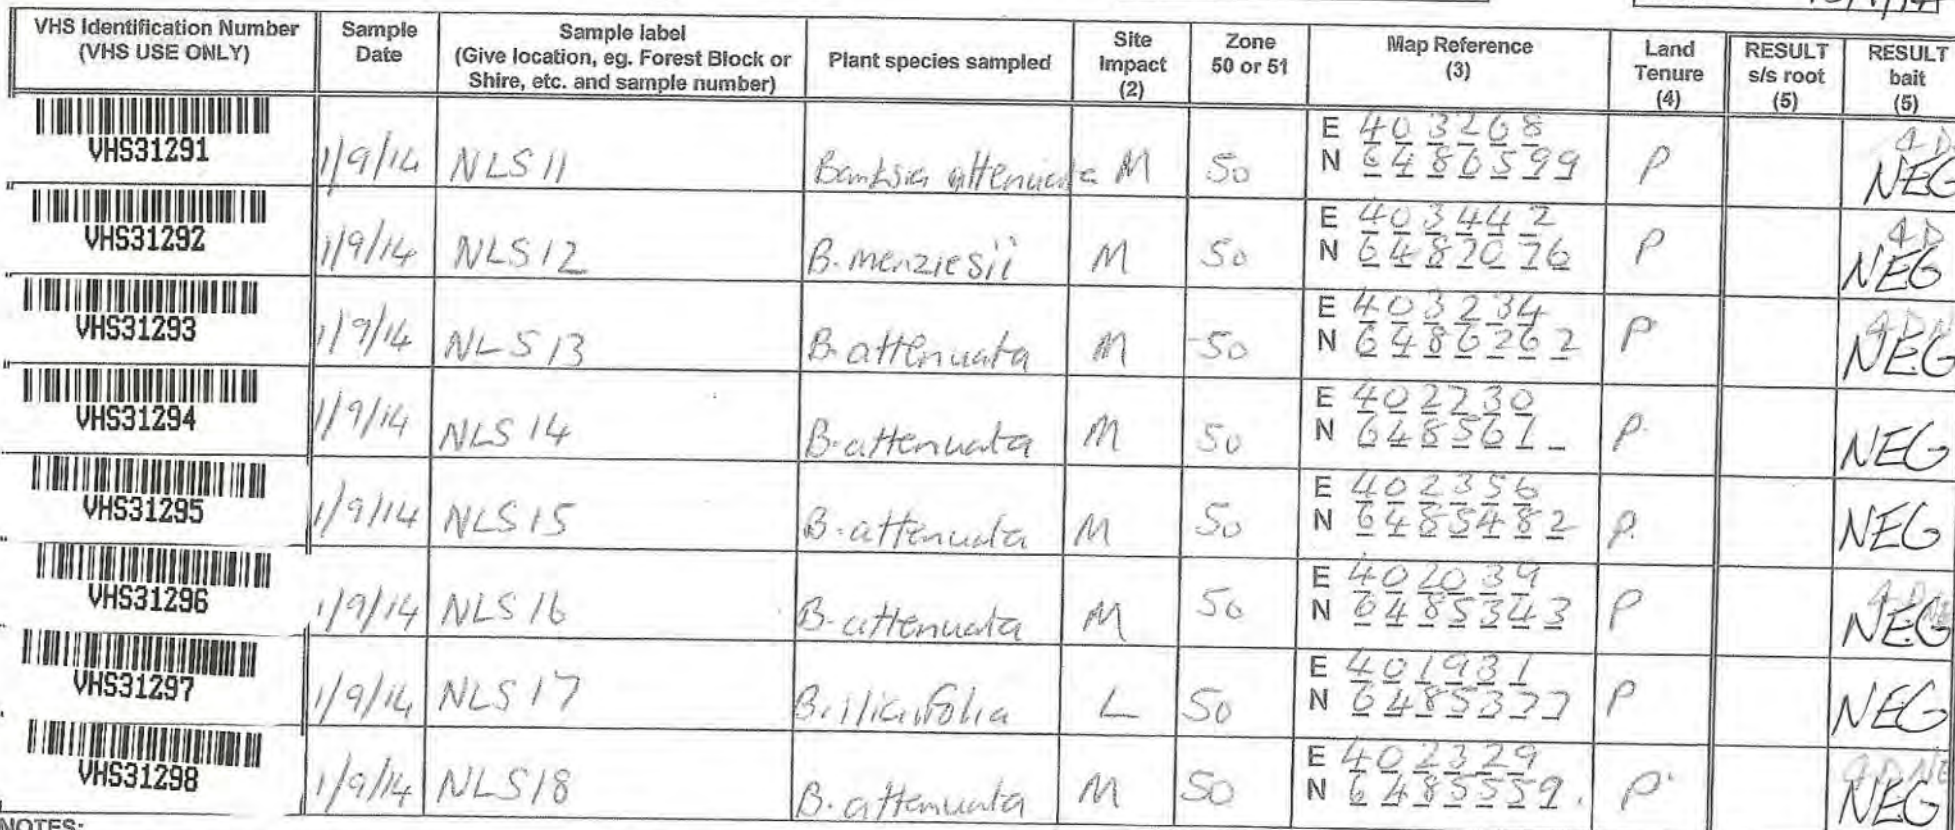 VHS Identification Number (VHS USE ONLY) Sample Date Sample label (Give location, eg. Forest Block or Shire, etc. and sample number) Plant species sampled Site Impact (2) Zone 50 or 51 Map Reference (3) Land Tenure (4) RESULT s/s root (5) RESULT bait (5)
VHS31291 1/9/14 NLS 11 Banksia attenuata M 50 E 403268 P NEG
N 6486599
VHS31292 1/9/14 NLS 12 B. menziesii M 50 E 403442 P NEG
N 6487076
VHS31293 1/9/14 NLS 13 B. attenuata M 50 E 403234 P NEG
N 6486262
VHS31294 1/9/14 NLS 14 B. attenuata M 50 E 402730 P. NEG
N 648561_
VHS31295 1/9/14 NLS 15 B. attenuata M 50 E 402356 P. NEG
N 6485482
VHS31296 1/9/14 NLS 16 B. attenuata M 50 E 402039 P NEG
N 6485343
VHS31297 1/9/14 NLS 17 B. ilicifolia L 50 E 401931 P NEG
N 6485377
VHS31298 1/9/14 NLS 18 B. attenuata M 50 E 402329 P NEG
N 6485559.
NOTES: